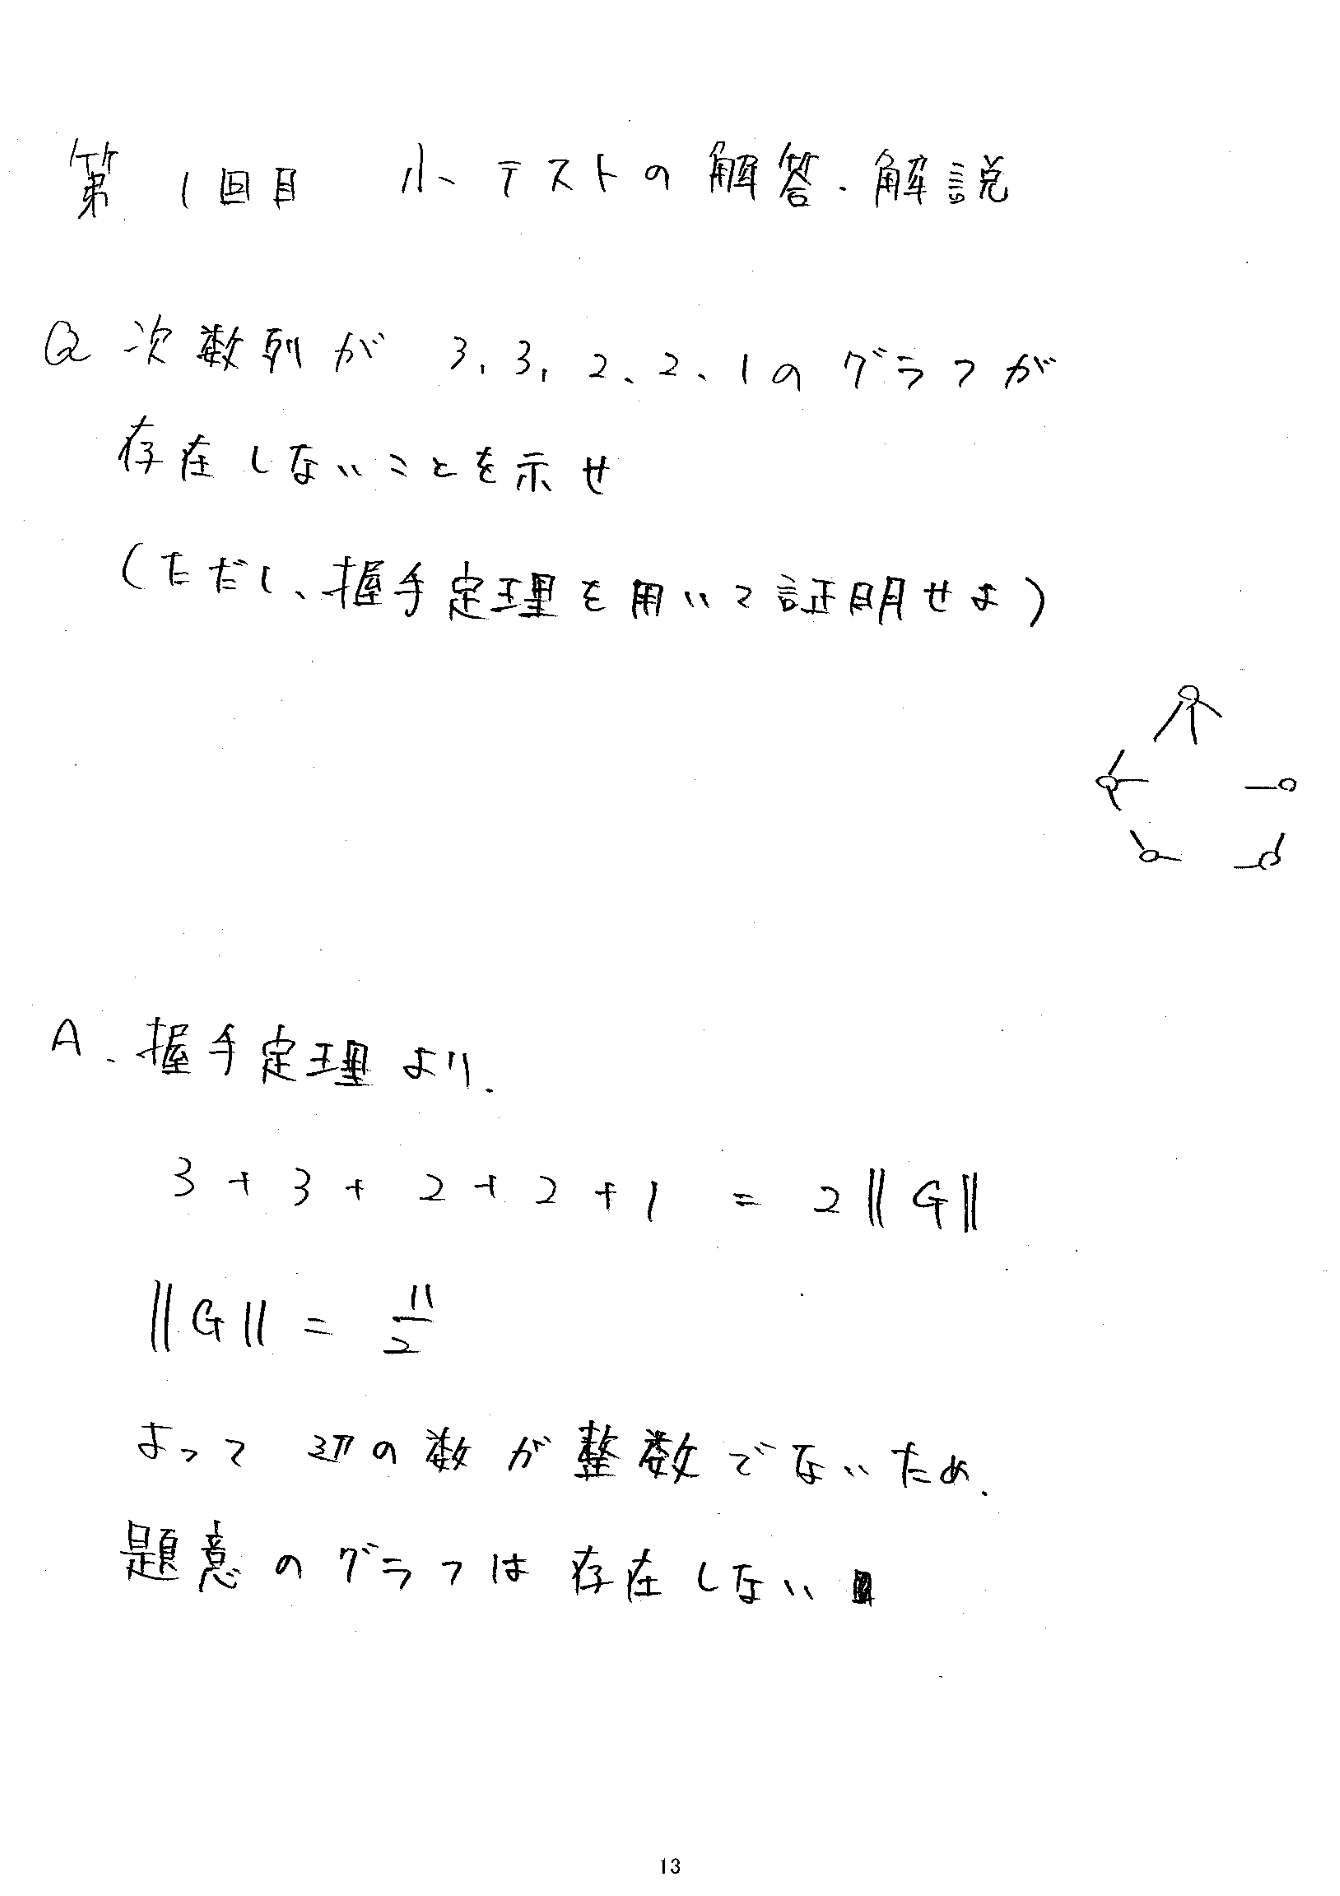 第1回目 小テストの解答・解説
Q 次数列が 3、3、2、2、1のグラフが
存在しないことを示せ
(ただし、握手定理を用いて証明せよ)
A. 握手定理より、
3 + 3 + 2 + 2 + 1 = 2||G||
||G|| = 11/2
よって 辺の数が整数でないため、
題意のグラフは存在しない■
13